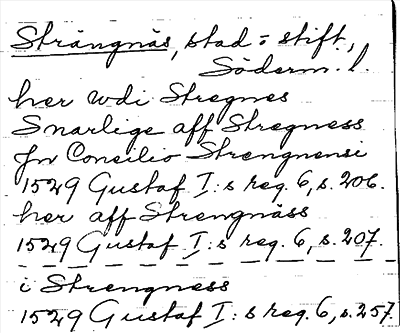 Strängnäs, stad o stift,
Söderm. l.
her wdi Stregnes
Snarlige aff Stregness
Jn Concilio Strengnensi
1529 Gustaf I:s reg. 6, s. 206.
her aff Strengnäss
1529 Gustaf I:s reg. 6, s. 207.
i Strengness
1529 Gustaf I:s reg. 6, s. 257.